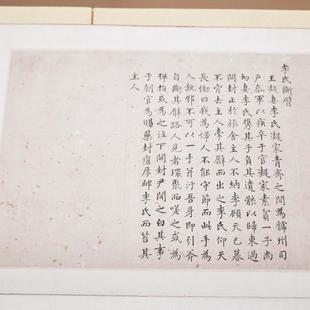 李氏斷臂
王凝妻李氏凝家青齊之間為虢州司
戶參軍以疾卒于官凝家素貧一子尚
幼妻李氏攜其子負其遺骸以歸東過
開封止於旅舍主人不納李顧天已暮
不肯去主人牽其臂而出之李氏仰天
長慟曰我為婦人不能守節而此手為
人執邪不可以一手并汙吾身即引斧
自斷其臂路人見者環聚而嗟之或為
彈指或為之泣下開封尹聞之白其事
于朝官為賜藥封瘡厚卹李氏而笞其
主人